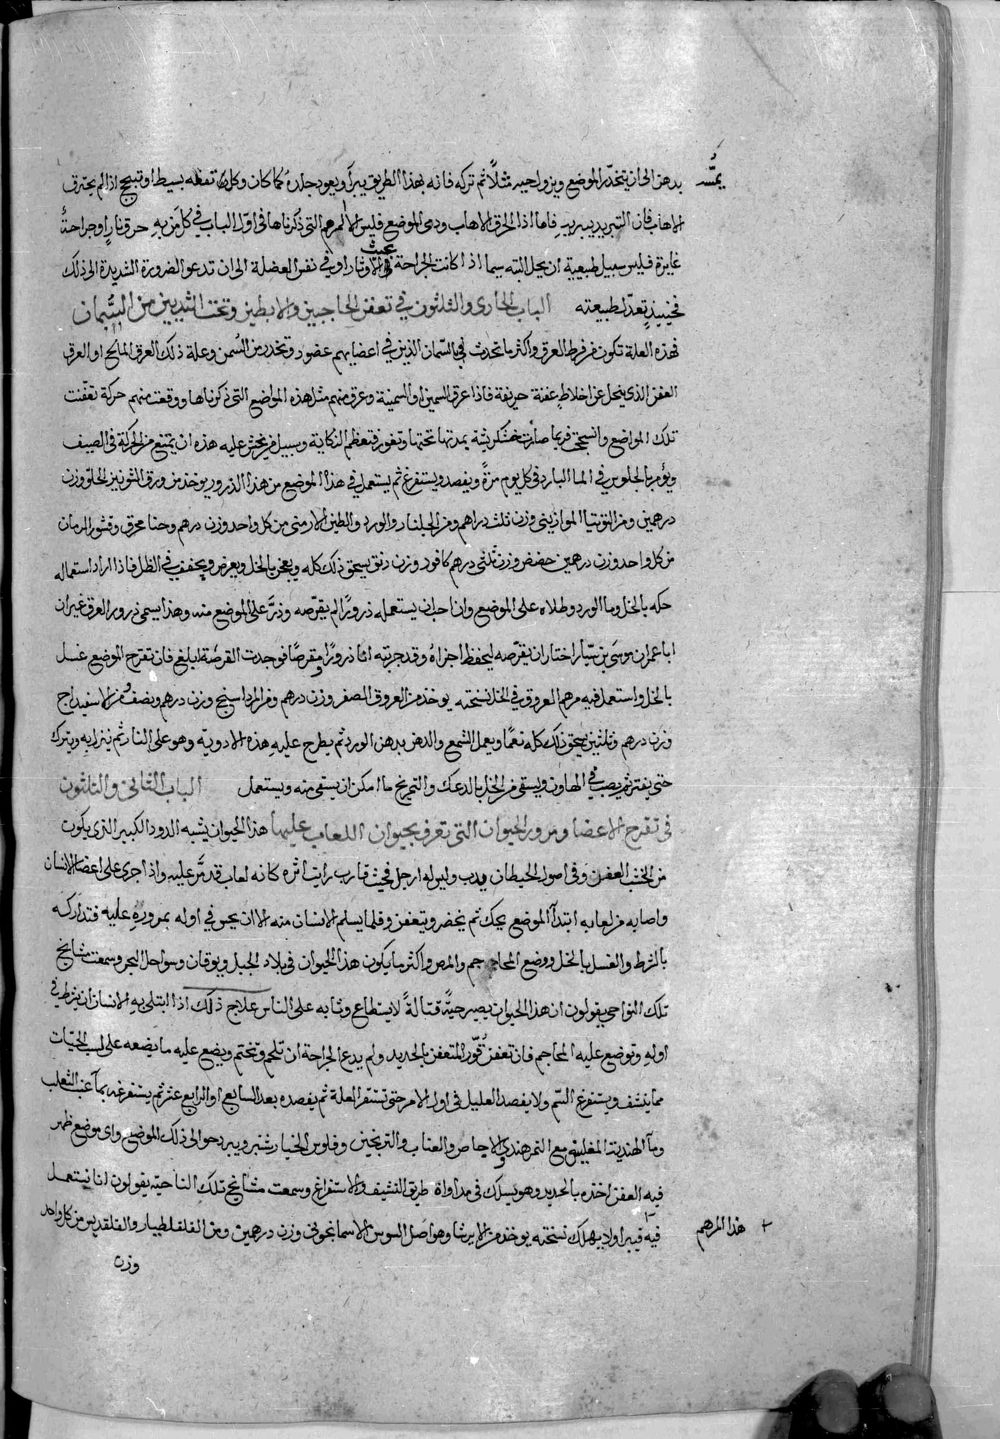 بدهن الى ان يتخدّر الموضع ويزول حسه مثلاً ثم تركه فانه بهذا الطريق يبرأ ويعود جلده كما كان وكل تفقه بسيط او تبيح اذا لم يحترق
الاهاب فان التبريد يبريه فاما اذا احترق الاهاب ودمى الموضع فليس الا المرهم التى ذكرناها فى اول الباب فى كل من به حرق نار او جراحة
غايرة فليس سبيل طبيعية ان يحل البته سيما اذا كانت الجراحة تحت الاوتار او فى نفس العضلة الى ان تدعو الضرورة الشديدة الى ذلك
فحينئذ تعدّل طبيعته الباب الحادى والثلثون فى تعفن الحاجبين والابطين وتحت الثديين من السمان
فهذه العلة تكون من فرط العرق واكثر ما تحدث فى السمان الذين فى اعضايهم عضور وتخدد من السمن وعلة ذلك العرق المالح او العرق
العفن الذى ينحل عن اخلاط عفنة حريفة فاذا عرق السمين او السمينة وعرق منهم مثل هذه المواضع التى ذكرناها ووقعت منهم حركة تعفنت
تلك المواضع وانسحجت فربما صارت خشكريشة يمد تحتها وتغور فتعظم النكاية وسبيل من يخش عليه هذه ان يمتنع من الحركة فى الصيف
ويؤمر بالجلوس فى الما البارد فى كل يوم مرة ويفصد ويستفرغ ثم يستعمل فى هذا الموضع من هذا الذرور يوخذ من ورق الشونيز الحلو وزن
درهمين ومن التوتيا الموازينى وزن ثلث دراهم ومن الجلنار والورد والطين الارمنى من كل واحد وزن درهم وحنا محرق وقشور الرمان
من كل واحد وزن درهمين حضض وزن ثلثى درهم كافور وزن دنق يسحق ذلك كله ويعجن بالخل ويقرص ويجفف فى الظل فاذا اراد استعماله
حكه بالخل وما الورد وطلاه على الموضع وان احب ان يستعمله ذرورا لم يقرّصه وذرّ على الموضع منه وهذا يسمى ذرور العرق غير ان
ابا عمران موسى بن سيّار اختار ان يقرّصه ليحفظ اجزاه وقد جربته انا ذرورا ومقرصا فوجدت القرصة ابلغ فان تقرح الموضع غسل
بالخل واستعمل فيه مرهم العروق فى الخل نسخته يوخذ من العروق الصفر وزن درهم ومن المرداسنج وزن درهم ونصف من الاسفيداج
وزن درهم وثلثين يسحق ذلك كله نعمّا ويعمل الشمع والدهن بدهن الورد ثم يطرح عليه هذه الادوية وهو على النار ثم ينزل به ويترك
حتى يفتر ثم يصب فى الهاون ويسقى من الخل بالدعك والتمريخ ما امكن ان يسقى منه ويستعمل الباب الثانى والثلثون
فى تقرح الاعضا ومرور الحيوان التى تعرف بحيوان اللعاب عليها هذا الحيوان يشبه الدود الكبير الذى يكون
من الخشب العفن وفى اصول الحيطان يدب وليس له ارجل فحيث قارب رايت اثره كانه لعاب قد مرّ عليه واذا جرى على اعضا الانسان
واصابه من لعابه ابتدأ الموضع يحك ثم يخضر ويتعفن وقلما يسلم الانسان منه الا ان يحس فى اوله بمروره عليه فتداركه
بالشرط والغسل بالخل ووضع المحاجم والمص واكثر ما يكون هذا الحيوان فى بلاد الجبل وبوقان وسواحل البحر وسمعت مشايخ
تلك النواحى يقولون ان هذا الحيوان يصير حيّة قتالة لا يستطاع وثابه على الناس علاج ذلك اذا ابتلى به الانسان ان يشرط فى
اوله وتوضع عليه المحاجم فان تعفن قوّر المتعفن بالحديد ولم يدع الجراحة ان تلحم وتختم ويضع عليه ما يضعه على لسب الحيّات
مما ينشف ويستفرغ السم ولا يفصد العليل فى اول الامر حتى تستقر العلة ثم يفصده بعد السابع او الرابع عشر ثم يستفرغه بما عنب الثعلب
وما الهندبا المغليين مع التمر هندى والاجاص والعناب والترنجبين وفلوس الخيار شنبر ويبرد حوالى ذلك الموضع واى موضع ظهر
فيه العفن اخذه بالحديد وهو يسلك فى مداواة طريق التنشيف والاستفراغ وسمعت مشايخ تلك الناحية يقولون انا نستعمل
فيه فيبرا ولا يهلك نسخته يوخذ من الايرسا وهو اصل السوس الاسمانجونى وزن درهمين ومن القلقطار والقلقديس من كل واحد
هذا المرهم
وزن